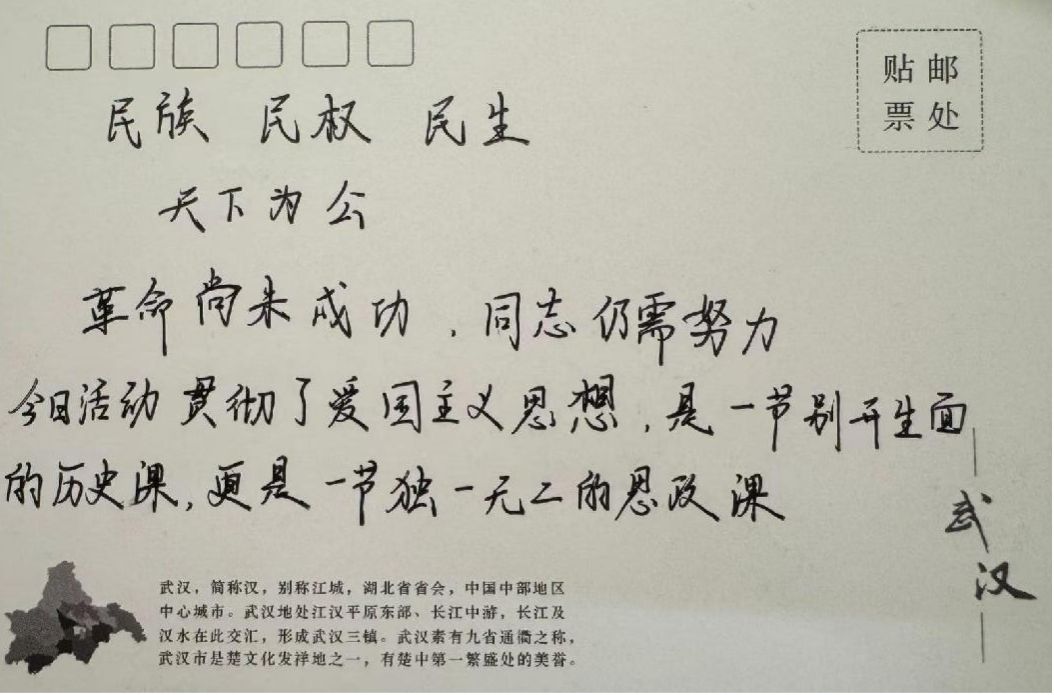 贴邮
票处
民族 民权 民生
天下为公
革命尚未成功，同志仍需努力
今日活动贯彻了爱国主义思想，是一节别开生面
的历史课，更是一节独一无二的思政课
武汉
武汉，简称汉，别称江城，湖北省省会，中国中部地区
中心城市。武汉地处江汉平原东部、长江中游，长江及
汉水在此交汇，形成武汉三镇。武汉素有九省通衢之称，
武汉市是楚文化发祥地之一，有楚中第一繁盛处的美誉。